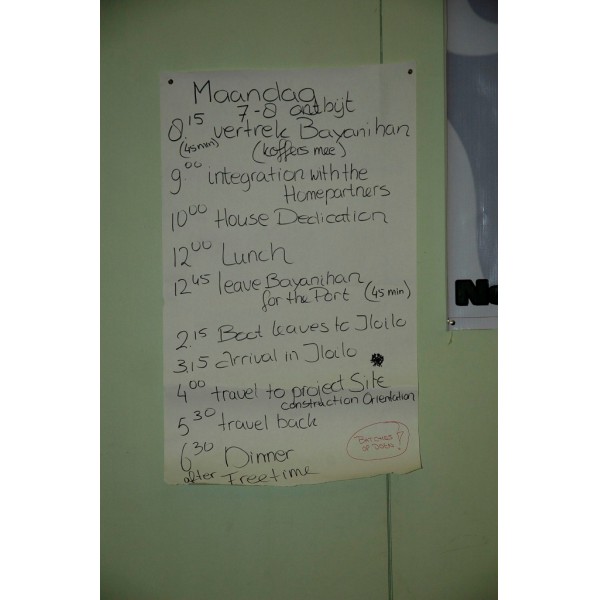 Maandag
7-8 ontbijt
8.15 vertrek Bayanihan
(45min) (koffers mee)
9.00 integration with the
Homepartners
10.00 House Dedication
12.00 Lunch
12.45 leave Bayanihan
for the Port (45 min)
2.15 Boot leaves to Iloilo
3.15 arrival in Iloilo
4.00 travel to project Site
construction Orientation
5.30 travel back
6.30 Dinner
after Freetime
?